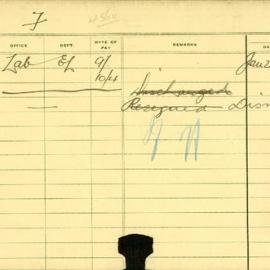 F
OFFICE DEPT. RATE OF PAY REMARKS DA
Lab EL 9/ Jan 2
10/24
Discharged
Resigned Dism